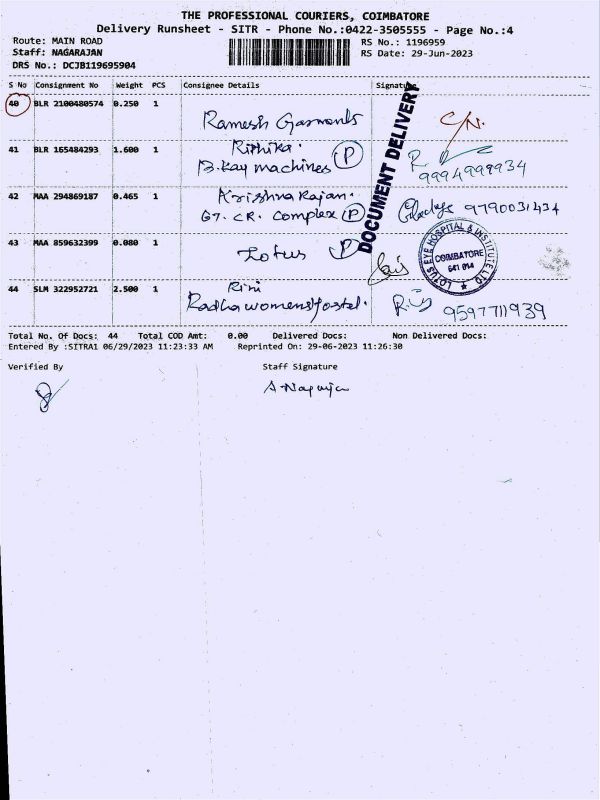 THE PROFESSIONAL COURIERS, COIMBATORE
Delivery Runsheet - SITR - Phone No.:0422-3505555 - Page No.:4
Route: MAIN ROAD
RS No.: 1196959
Staff: NAGARAJAN
RS Date: 29-Jun-2023
DRS No.: DCJB119695904
S No Consignment No Weight PCS Consignee Details Signature
40 BLR 2100480574 0.250 1
Ramesh Garments
C/N.
41 BLR 165484293 1.600 1 Rithika.
B.Kay machines (P)
9994999934
42 MAA 294869187 0.465 1 Krishna Rajan.
G7. CR. Complex (P)
9790031434
43 MAA 859632399 0.080 1
Lotus (P)
DOCUMENT DELIVERY
LOTUS EYE HOSPITAL & INSTITUTE LTD
COIMBATORE
641 014
44 SLM 322952721 2.500 1 Rini
Radha womens Hostel.
9597711939
Total No. Of Docs: 44 Total COD Amt: 0.00 Delivered Docs: Non Delivered Docs:
Entered By :SITRA1 06/29/2023 11:23:33 AM Reprinted On: 29-06-2023 11:26:30
Verified By Staff Signature